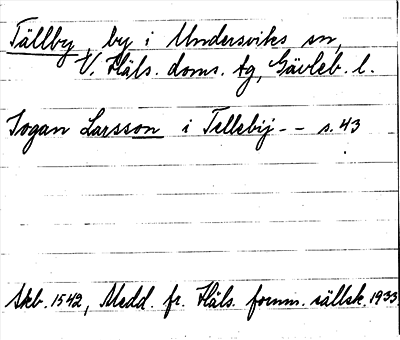 Tällby, by i Undersviks sn,
V. Häls. doms. tg, Gävleb. l.
Jogan Larsson i Tellebÿ - - s. 43
Skb. 1542, Medd. fr. Häls. fornm. sällsk. 1933.